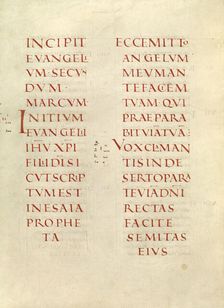 INCIPIT
EVANGELI
VM SECVN
DVM
MARCVM
INITIVM
EVANGELI
IHV XPI
FILI DI SI
CVT SCRIP
TVM EST
IN ESAIA
PROPHE
TA
ECCE MITTO
ANGELVM
MEVM AN
TE FACIEM
TVAM QVI
PRAEPARA
BIT VIA TVA
VOX CLAMAN
TIS IN DE
SERTO PARA
TE VIA DNI
RECTAS
FACITE
SEMITAS
EIVS